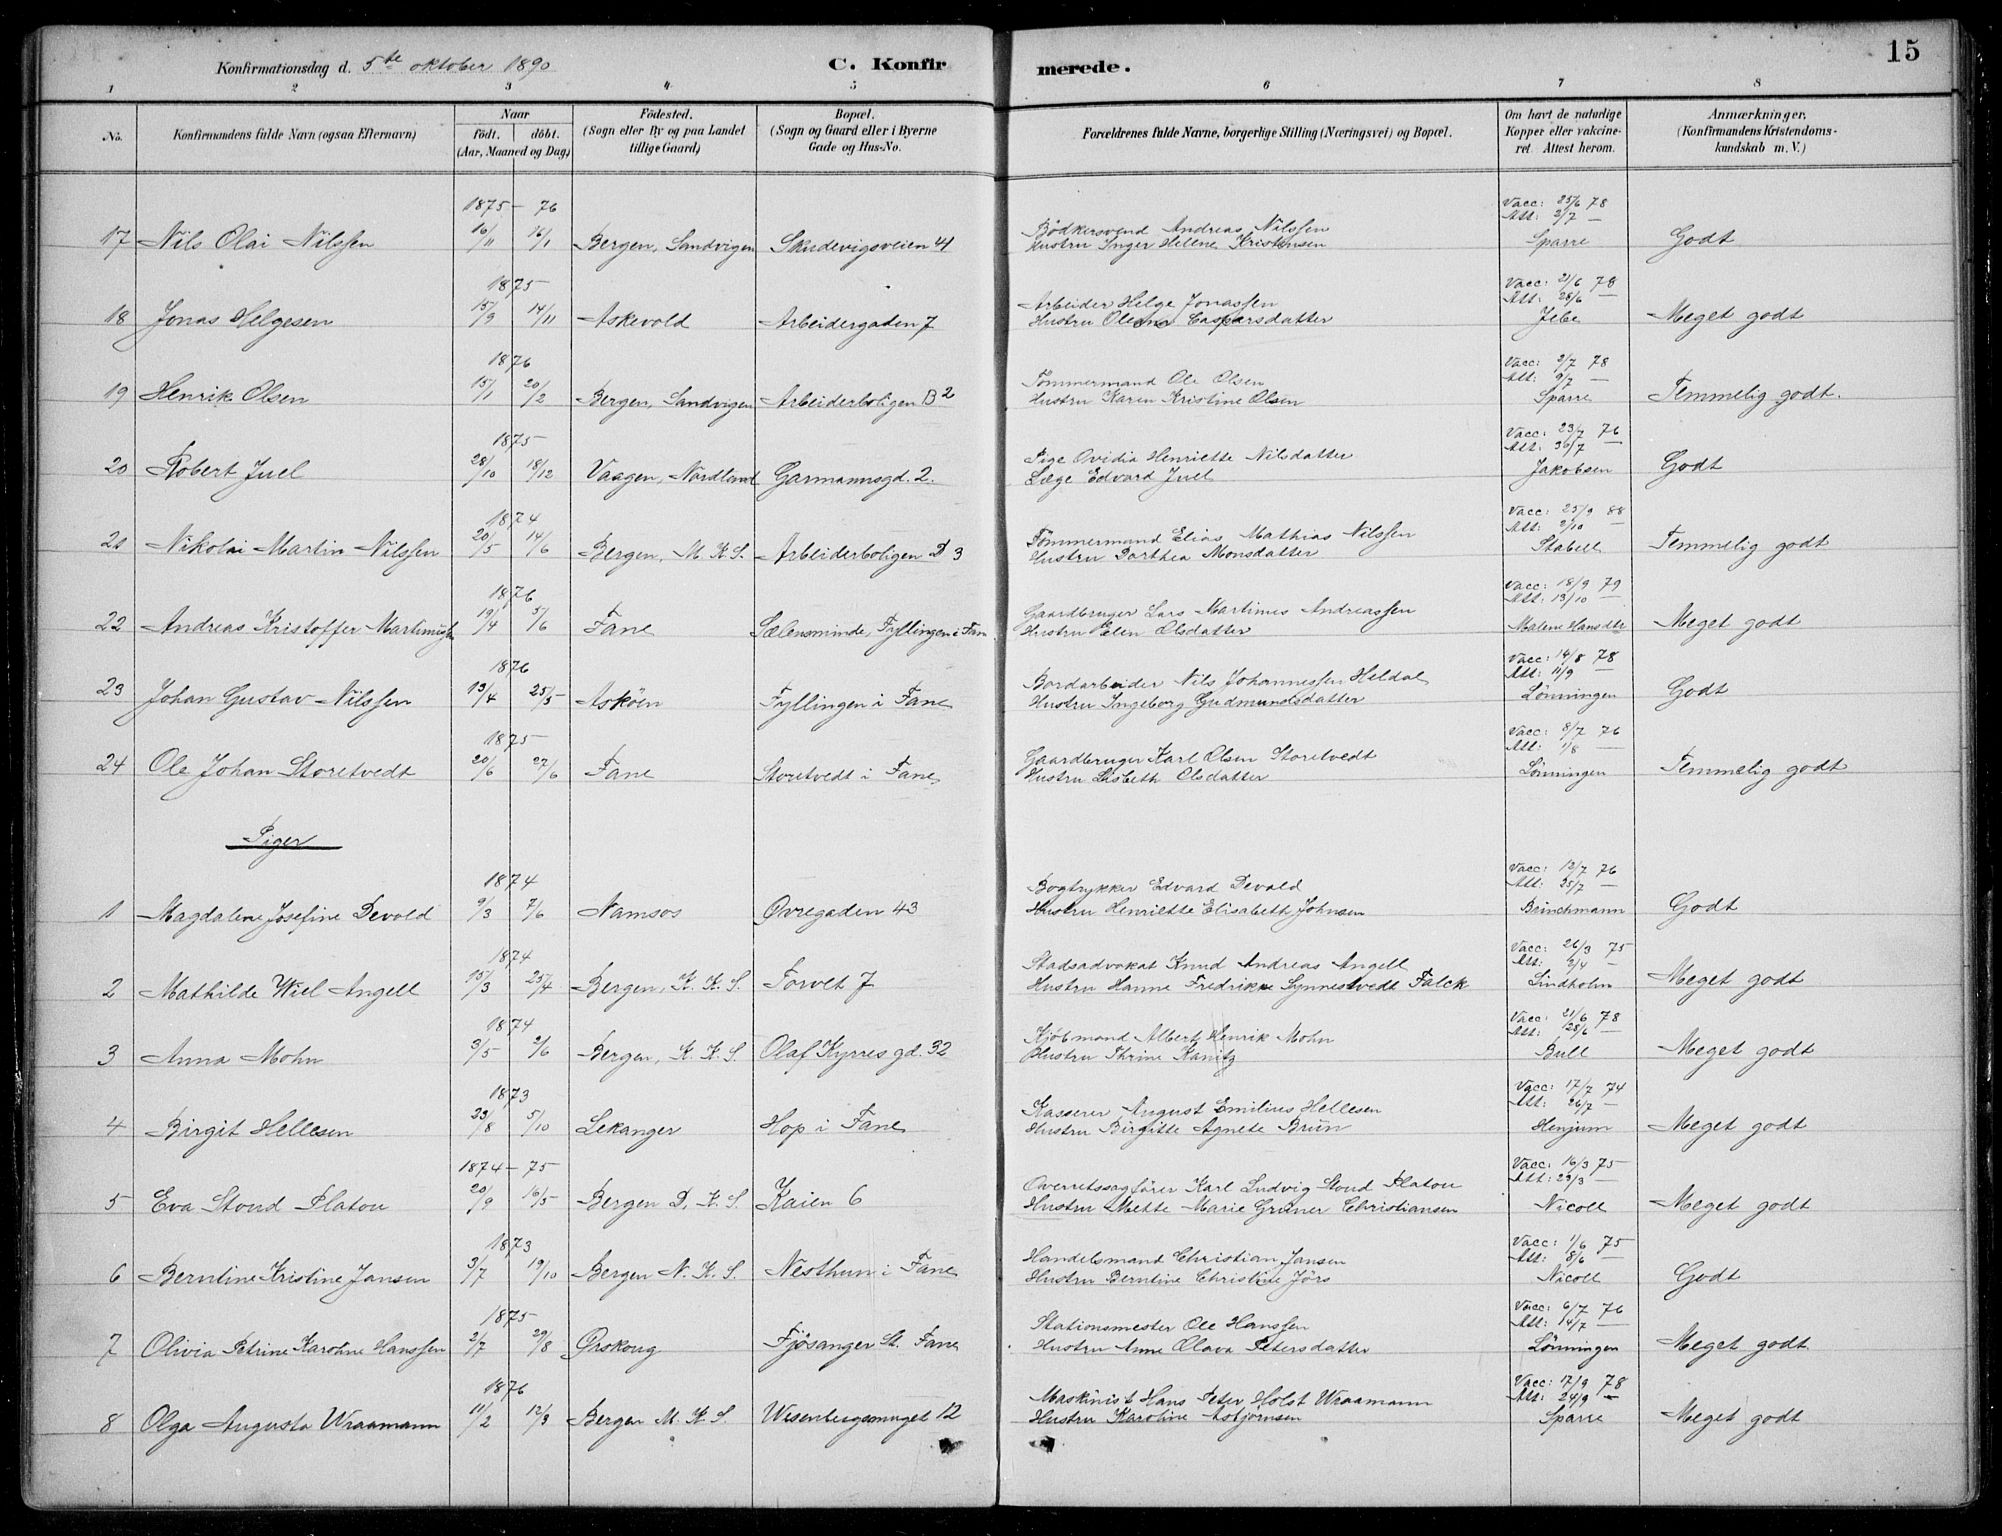 Konfirmationsdag d. 5te oktober 1890
C. Konfirmerede.
15
1 2 3 4 5 6 7 8
No.
Konfirmandens fulde Navn (ogsaa Efternavn)
Naar
födt. döbt.
(Aar, Maaned og Dag)
Födested.
(Sogn eller By og paa Landet
tillige Gaard)
Bopæl.
(Sogn og Gaard eller i Byerne
Gade og Hus-No.
Forældrenes fulde Navne, borgerlige Stilling (Næringsvei) og Bopæl.
Om havt de naturlige
Kopper eller vakcine-
ret. Attest herom.
Anmærkninger.
(Konfirmandens Kristendoms-
kundskab m. V.)
1875 - 76
17 Nils Olai Nilssen 16/11 16/1 Bergen, Sandvigen Skudevigsveien 4
Bödkersvend Andreas Nilssen
Hustru Inger Helene Kristensen
Vacc: 25/6 78
Att: 2/7 —
Sparre
Godt
1875
18 Jonas Helgesen 15/9 14/11 Askevold Arbeidergaden 7
Arbeider Helge Jonassen
Hustru Olena Caspersdatter
Vacc: 21/6 78
Att: 28/6 —
Jebe
Meget godt
1876
19 Henrik Olsen 15/1 20/2 Bergen, Sandvigen Arbeiderboligen B 2
Tömmermand Ole Olsen
Hustru Karen Kristine Olsen
Vacc: 2/7 78
Att: 9/7 —
Sparre
Temmelig godt.
1875
20 Robert Juel 28/10 18/12 Vaagen, Nordland Garmannsgd. 2.
Pige Ovidia Henriette Nilsdatter
Læge Edvard Juel
Vacc: 23/7 76
Att: 30/7
Jakobsen
Godt
1874
21 Nikolai Martin Nilssen 20/5 14/6 Bergen, M. K. S. Arbeiderboligen D 3
Tömmermand Elias Mathias Nilssen
Hustru Dorthea Monsdatter
Vacc: 25/9 88
Att: 2/10 —
Stabell
Temmelig godt
1876
22 Andreas Kristoffer Martinussen 19/4 5/6 Fane Sælensminde, Fyllingen i Fane
Gaardbruger Lars Martinus Andreassen
Hustru Elen Olsdatter
Vacc: 18/9 79
Att: 13/10 —
Malene Hansdtr
Meget godt
1876
23 Johan Gustav Nilssen 13/4 25/5 Asköen Fyllingen i Fane
Bordarbeider Nils Johannessen Heldal
Hustru Ingeborg Gudmundsdatter
Vacc: 14/8 78
Att: 11/9 —
Lönningen
Godt
1875
24 Ole Johan Storetvedt 20/6 27/6 Fane Storetvedt i Fane
Gaardbruger Karl Olsen Storetvedt
Hustru Lisbeth Olsdatter
Vacc: 8/7 76
Att: 1/8 —
Lönningen
Temmelig godt
Piger
1874
1 Magdalene Josefine Devold 9/3 7/6 Namsos Øvregaden 43
Bogtrykker Edvard Devold
Hustru Henriette Elisabeth Johnsen
Vacc: 12/7 76
Att: 25/7 —
Brinchmann
Godt
1874
2 Mathilde Wiel Angell 15/3 25/4 Bergen, K. K. S. Torvet 7
Stadsadvokat Knud Andreas Angell
Hustru Hanne Fredrikke Synnestvedt Falck
Vacc: 26/3 75
Att: 2/4 —
Lindholm
Meget godt
1874
3 Anna Mohn 3/5 2/6 Bergen, K. K. S. Olaf Kyrres gd. 32
Kjöbmand Albert Henrik Mohn
Hustru Thrine Kanitz
Vacc: 21/6 78
Att: 28/6 —
Bull
Meget godt
1873
4 Birgit Hellesen 23/8 5/10 Lekanger Hop i Fane
Kasserer August Emilius Hellesen
Hustru Birgitte Agnete Brün
Vacc: 17/7 74
Att: 26/7 —
Henjum
Meget godt
1874 - 75
5 Eva Stoud Platou 20/9 16/5 Bergen D. K. S. Kaien 6
Overretssagförer Karl Ludvig Stoud Platou
Hustru Mette Marie Grüner Christiansen
Vacc: 16/3 75
Att: 29/3 —
Nicoll
Meget godt
1873
6 Berntine Kristine Jansen 3/7 19/10 Bergen N. K. S. Nesthun i Fane
Handelsmand Christian Jansen
Hustru Berntine Christine Jörs
Vacc: 1/6 75
Att: 8/6
Nicoll
Godt
1875
7 Olivia Petrine Karoline Hanssen 2/7 29/8 Ørskoug Fjösanger St. Fane
Stationsmester Ole Hanssen
Hustru Anne Olava Petersdatter
Vacc: 6/7 76
Att: 14/7 —
Lönningen
Meget godt
1876
8 Olga Augusta Wraamann 11/2 12/3 Bergen M. K. S. Wesenbergsmuget 12
Maskinist Hans Peter Holst Wraamann
Hustru Karoline Asbjörnsen
Vacc: 17/9 78
Att: 24/9 —
Sparre
Meget godt